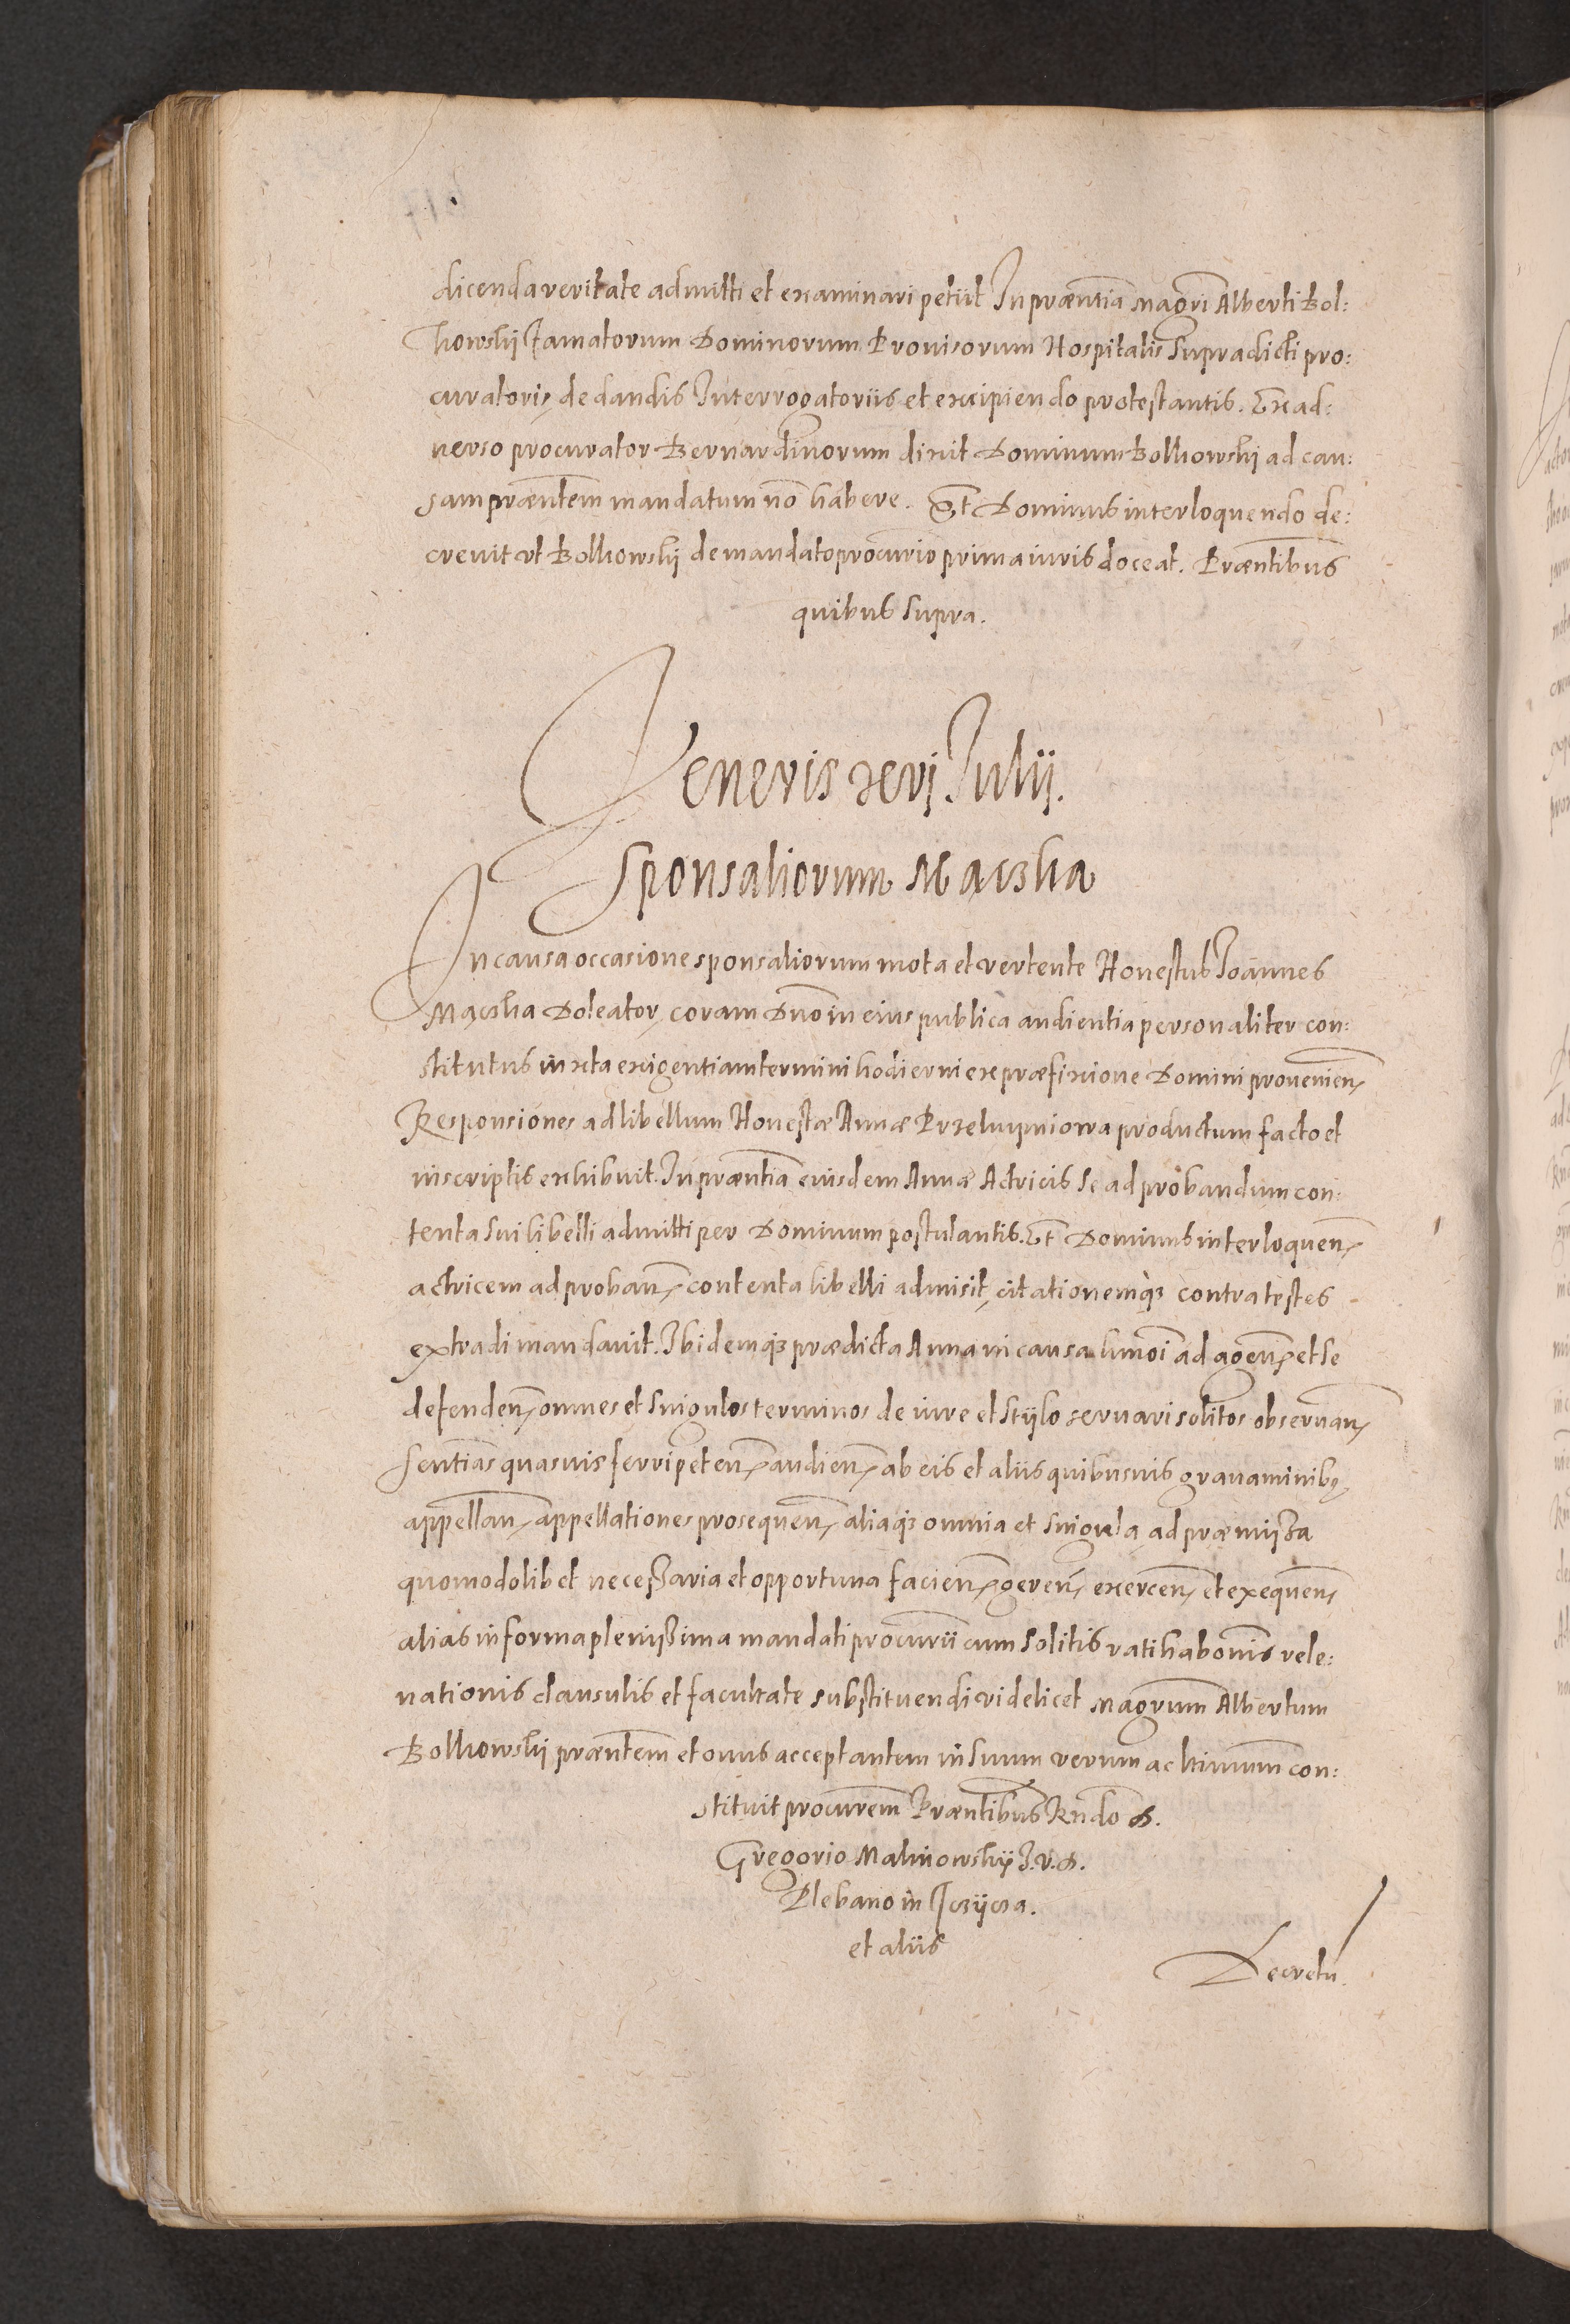 dicenda veritate admitti et examinari petiit In praentia magri Alberti Bol:
howski famatorum Dominorum Prouisorum Hospitalis supradicti pro:
curatoris, de dandis Interrogatoriis et excipiendo protestantis. Ex ad:
uerso procurator Bernardinorum dixit Dominum Bolkowski ad cau:
sam praentem mandatum no habere. Et Dominus interloquendo de:
creuit vt Bolkowski de mandato procurio prima iuris doceat. Praentibus
quibus supra.
Veneris xxvj Julij.
Sponsaliorum Maczka
In causa occasione sponsaliorum mota et vertente Honestus Joannes
Maczka Doleator, coram Dno in eius publica audientia personaliter con:
stitutus iuxta exigentiam termini hodierni ex praefixione Domini prouenien
Responsiones ad libellum Honestae Annae productum facto et
in scriptis exhibuit. In praentia eiusdem Annae Actricis se ad probandum con:
tenta sui libelli admitti per Dominum postulantis. Et Dominus interloquen
actricem ad proban contenta libelli admisit, citationemq3 contra testes
extradi mandauit. Ibidemq3 praedicta Anna in causa humoi ad agen et se
defenden omnes et singulos terminos de iure et stijlo seruari solitos obseruan
sentias quasuis ferri peten audien ab eis et aliis quibusuis grauaminibq
appellan appellationes prosequen aliaq3 omnia et singula ad praemissa
quomodolibet necessaria et opportuna facien geren exercen et exequen
alias in forma plenissima mandati procurii cum solitis ratihabonis rele:
uationis clausulis et facultate substituendi videlicet Magrum Albertum
Bolkowski praentem et onus acceptantem in suum verum ac ltimum con:
stituit procurem Praentibus Rndo D.
Gregorio Malinowskij J.V.D.
Plebano in
et aliis
Decretu.